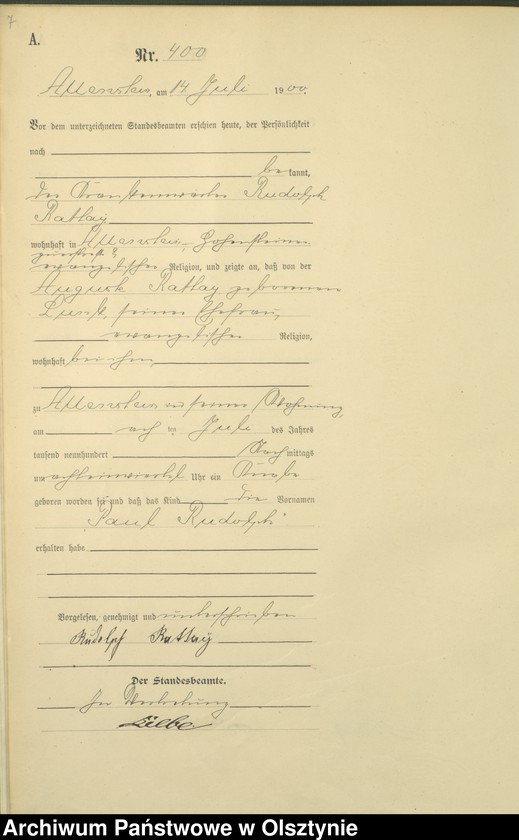 7
A.
Nr. 400
Allenstein, am 14 Juli 1900.
Vor dem unterzeichneten Standesbeamten erschien heute, der Persönlichkeit
nach
be kannt,
der Rudolph
Rattay
wohnhaft in Allenstein, Hohensteiner
evangelischer Religion, und zeigte an, daß von der
Rattay geborenen
seiner Ehefrau,
evangelischer Religion,
wohnhaft bei ihm,
zu Allenstein in seiner Wohnung,
am ten Juli des Jahres
tausend neunhundert Nach mittags
um Uhr ein Knabe
geboren worden sei und daß das Kind die Vornamen
Paul Rudolph
erhalten habe
Vorgelesen, genehmigt und unterschrieben
Rudolf Rattay
Der Standesbeamte.
In Vertretung
Archiwum Państwowe w Olsztynie